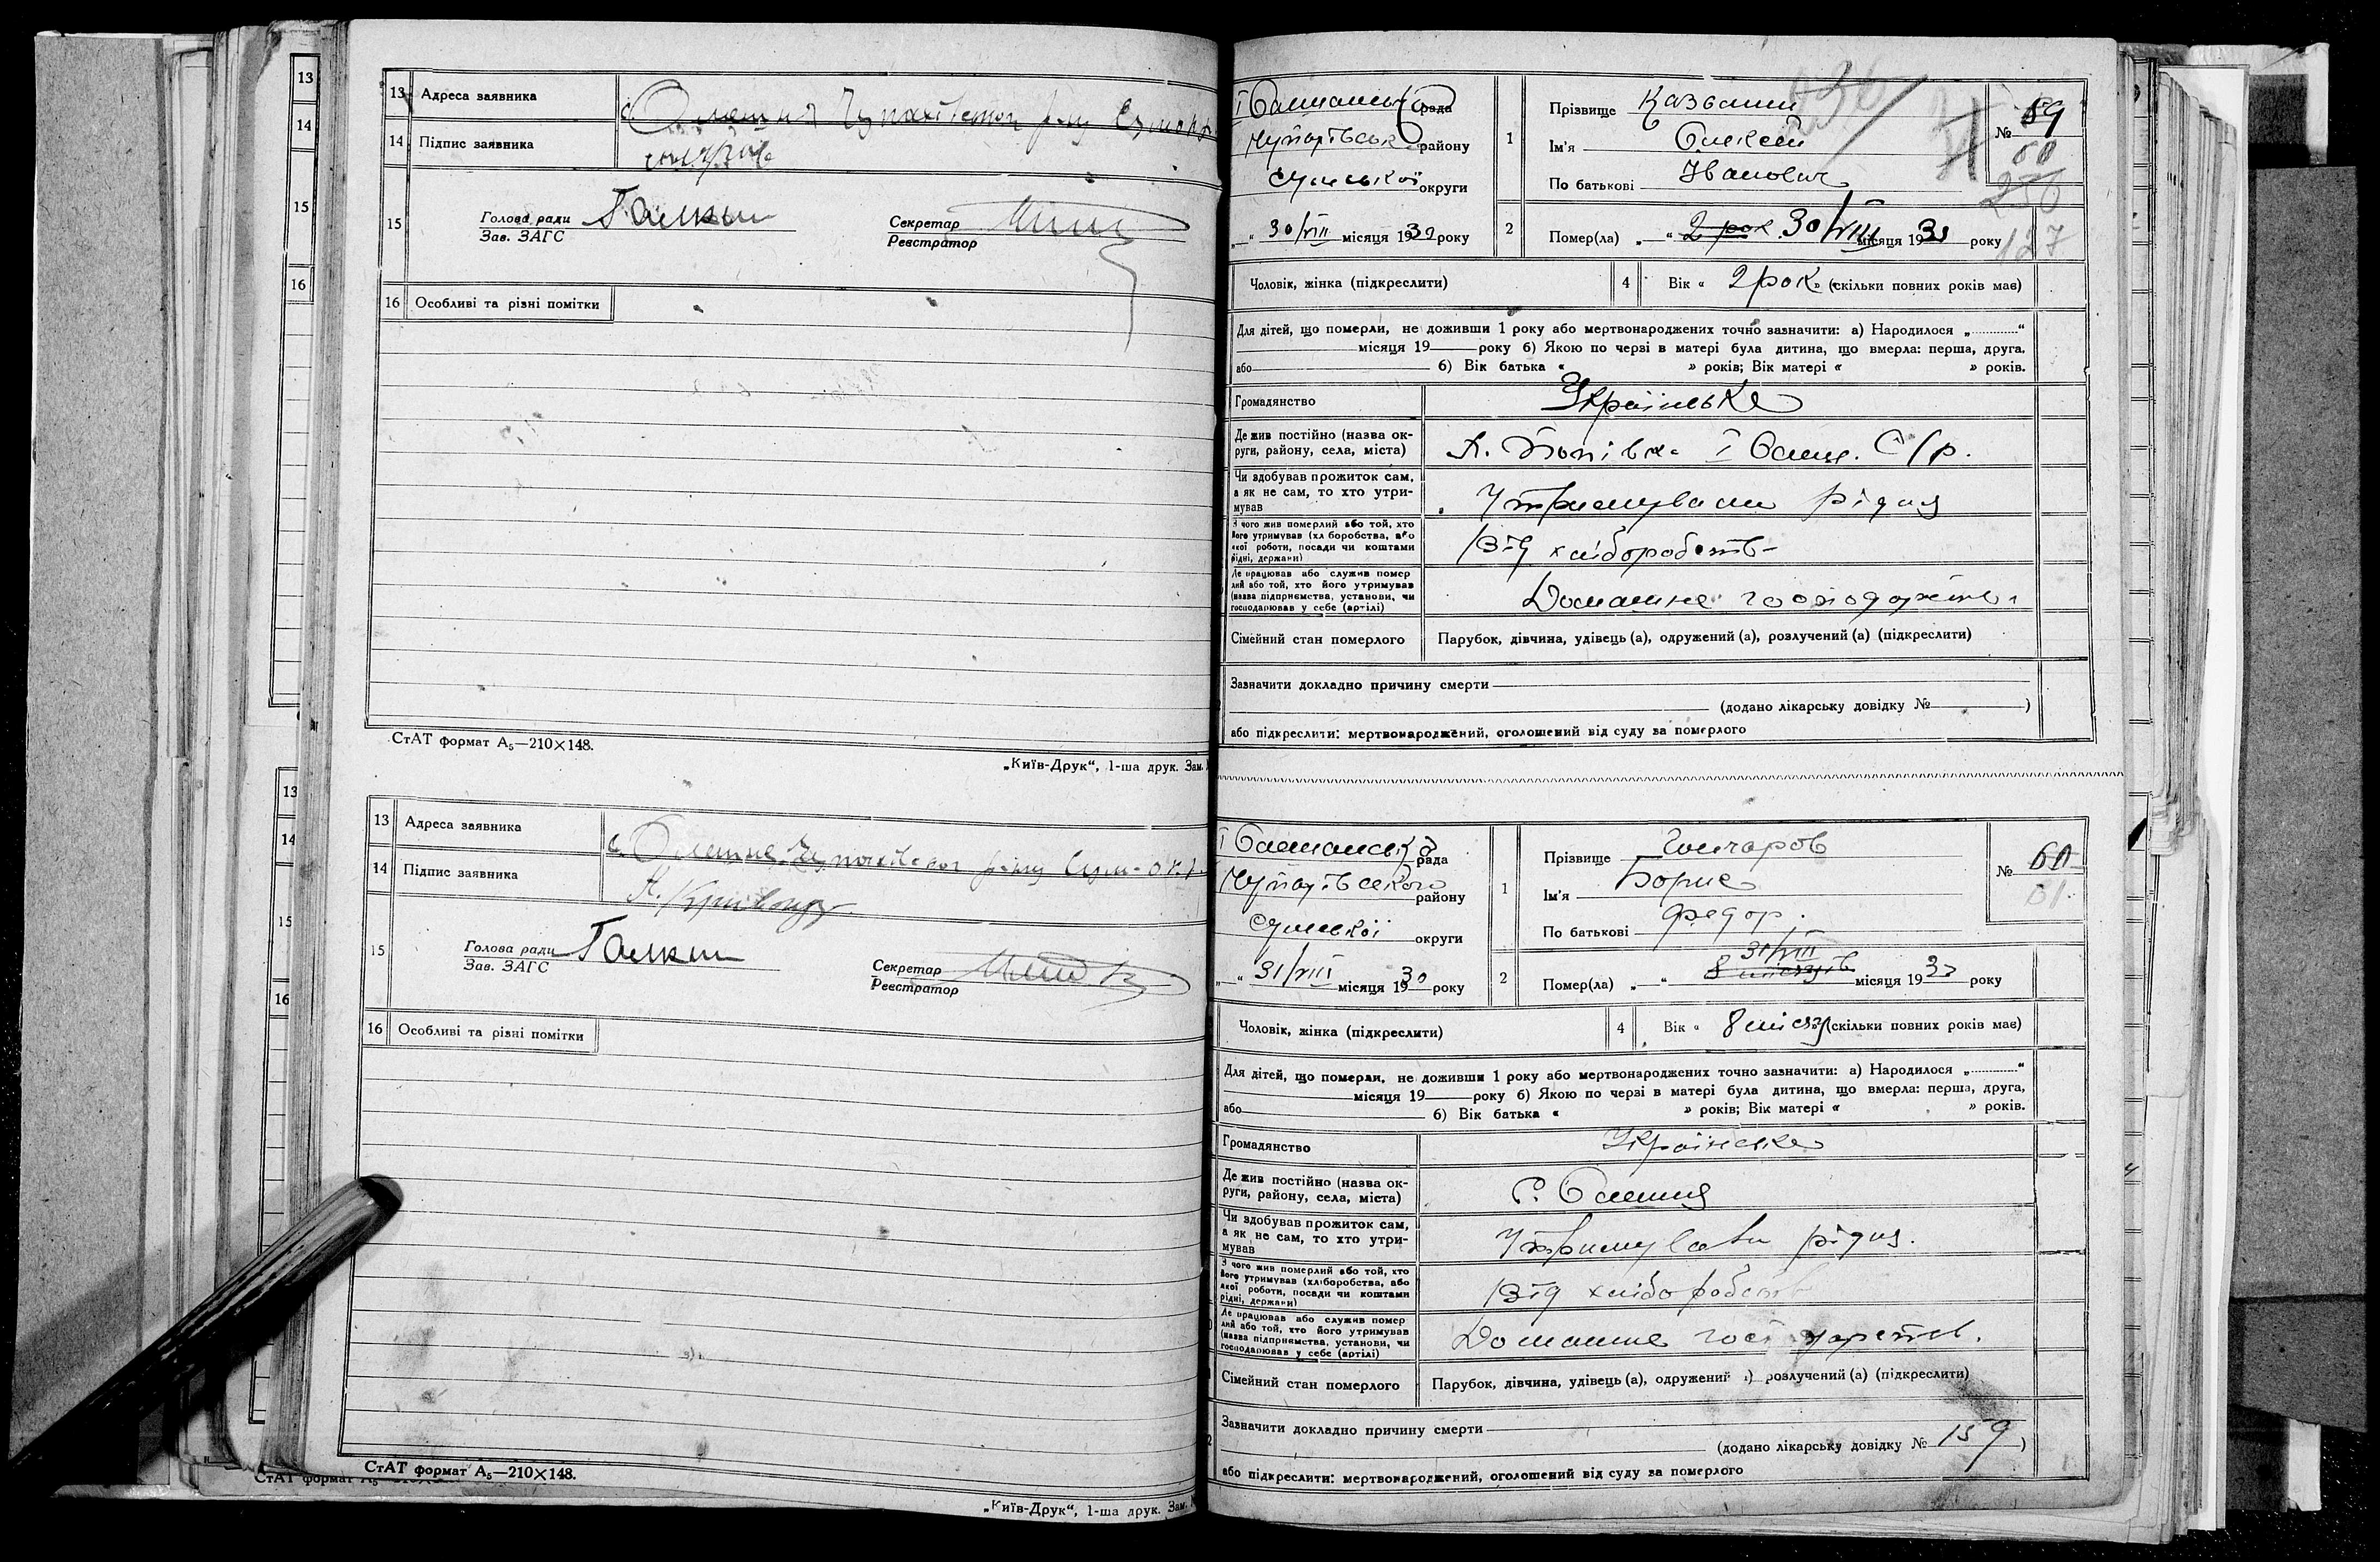 13
14
15
16
13
14
15
16
13 Адреса заявника с.
14 Підпис заявника
15 Голова ради Галкин Секретар
Зав. ЗАГС Реєстратор
16 Особливі та різні помітки
СтАТ формат А₅—210×148.
„Київ-Друк“, 1-ша друк. Зам.
13 Адреса заявника с.
14 Підпис заявника
15 Голова ради Галкин Секретар
Зав. ЗАГС Реєстратор
16 Особливі та різні помітки
СтАТ формат А₅—210×148.
СтАТ формат А₅
„Київ-Друк“, 1-ша друк. Зам.
рада
району
Сумської округи
„ “ 30/VIII місяця 1930 року
1 Прізвище
Ім'я Олексій
По батькові Іванович
№ 59
60
127
2 Помер(ла) „ “ 2 рок. 30/VIII місяця 1930 року
Чоловік, жінка (підкреслити) 4 Вік « 2 рок» (скільки повних років має)
Для дітей, що померли, не доживши 1 року або мертвонароджених точно зазначити: а) Народилося „ “
місяця 19 року б) Якою по черзі в матері була дитина, що вмерла: перша, друга,
або б) Вік батька « » років; Вік матері « » років.
Громадянство Українське
Де жив постійно (назва ок-
руги, району, села, міста) С/р.
Чи здобував прожиток сам,
а як не сам, то хто утри-
мував Утримували рідня
З чого жив померлий або той, хто
його утримував (хліборобства, або
якої роботи, посади чи коштами
рідні, держави) Від хліборобств
Де працював або служив помер
лий або той, хто його утримував
(назва підприємства, установи, чи
господарював у себе (артілі) Домашне господарств
Сімейний стан померлого Парубок, дівчина, удівець (а), одружений (а), розлучений (а) (підкреслити)
Зазначити докладно причину смерти
(додано лікарську довідку № )
або підкреслити: мертвонароджений, оголошений від суду за померлого
рада
району
Сумської округи
„ “ 31/VIII місяця 1930 року
1 Прізвище Гончаров
Ім'я Борис
По батькові Федор.
№ 60
61
31/VIII
2 Помер(ла) „ “ 8 місяців місяця 1930 року
Чоловік, жінка (підкреслити) 4 Вік « 8 місяц (скільки повних років має)
Для дітей, що померли, не доживши 1 року або мертвонароджених точно зазначити: а) Народилося „ “
місяця 19 року б) Якою по черзі в матері була дитина, що вмерла: перша, друга,
або б) Вік батька « » років; Вік матері « » років.
Громадянство Українське
Де жив постійно (назва ок-
руги, району, села, міста) С. Олешня
Чи здобував прожиток сам,
а як не сам, то хто утри-
мував рідня.
З чого жив померлий або той, хто
його утримував (хліборобства, або
якої роботи, посади чи коштами
рідні, держави) Від хліборобств
Де працював або служив помер
лий або той, хто його утримував
(назва підприємства, установи, чи
господарював у себе (артілі) Домашне господарств.
Сімейний стан померлого Парубок, дівчина, удівець (а), одружений розлучений (а) (підкреслити)
Зазначити докладно причину смерти
(додано лікарську довідку № 159 )
або підкреслити: мертвонароджений, оголошений від суду за померлого